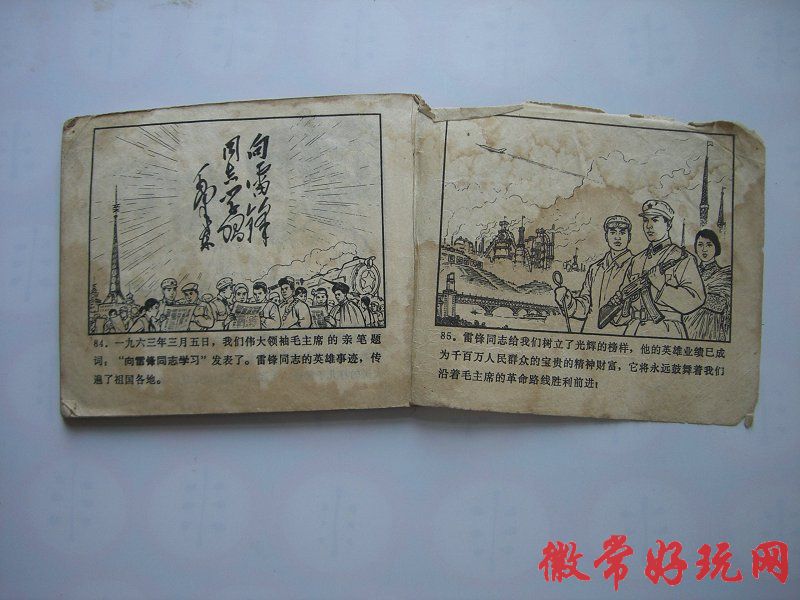 向雷锋
同志学习
毛泽东
84. 一九六三年三月五日，我们伟大领袖毛主席的亲笔题
词：“向雷锋同志学习”发表了。雷锋同志的英雄事迹，传
遍了祖国各地。
85. 雷锋同志给我们树立了光辉的榜样，他的英雄业绩已成
为千百万人民群众的宝贵的精神财富，它将永远鼓舞着我们
沿着毛主席的革命路线胜利前进！
徽常好玩网